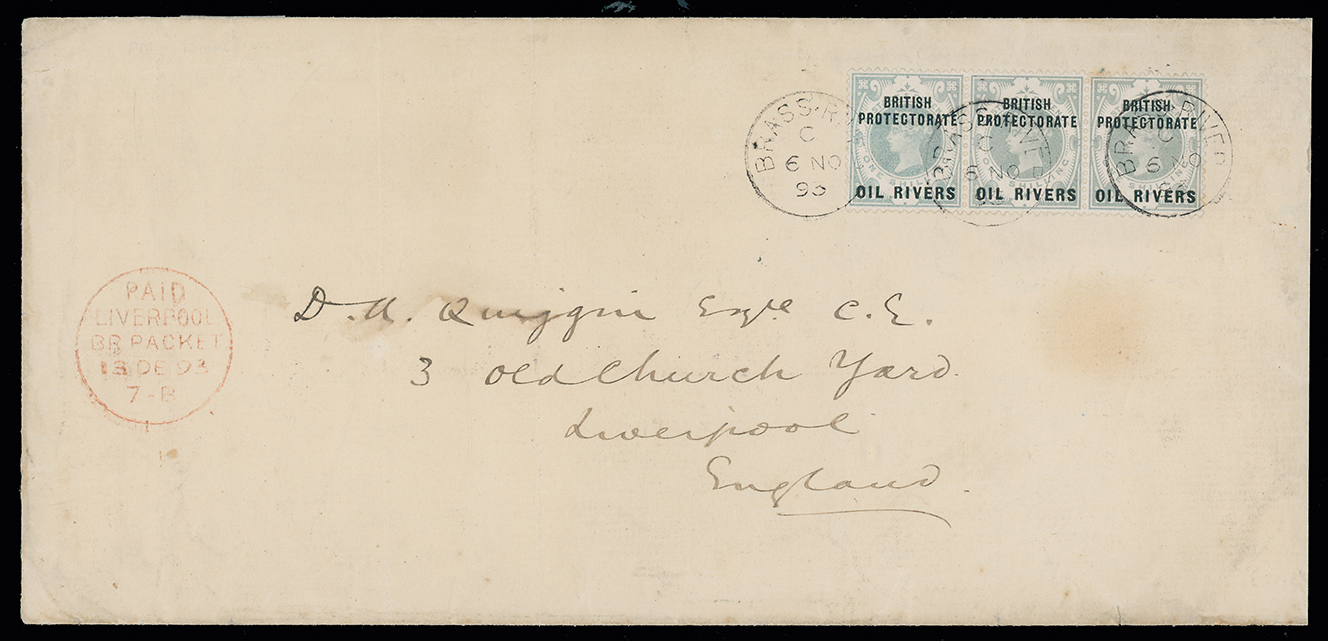 BRITISH PROTECTORATE OIL RIVERS
BRITISH PROTECTORATE OIL RIVERS
BRITISH PROTECTORATE OIL RIVERS
ONE SHILLING
BRASS RIV
C
6 NO
93
BRASS RIVE
C
6 NO
93
BRASS RIVER
C
6 NO
93
PAID
LIVERPOOL
BR PACKET
13 DE 93
7-B
D. A. Quiggin Esqre C.E.
3 Old Church Yard.
Liverpool
England.